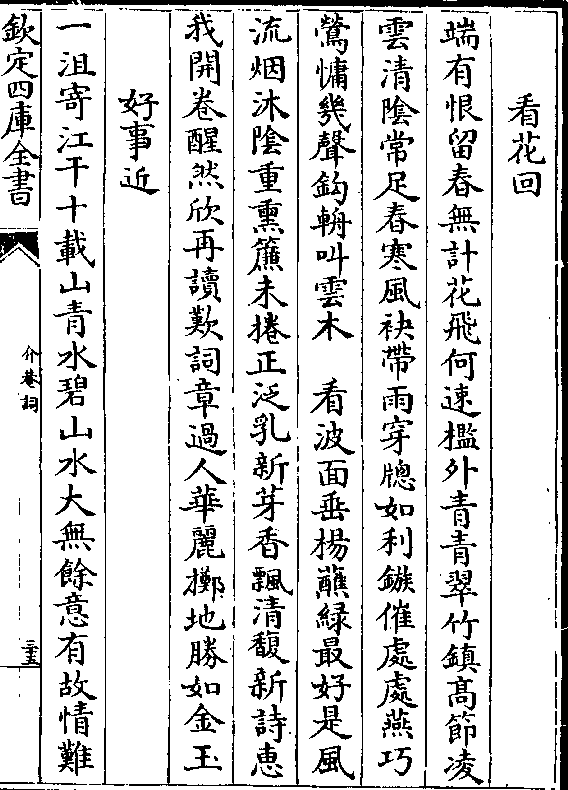 看花回
端有恨留春無計花飛何速檻外青青翠竹鎮髙節凌
雲清陰常足春寒風袂帶雨穿牕如利鏃催處處燕巧
鶯慵幾聲鈎輈叫雲木　看波面垂楊蘸緑最好是風
流烟沐陰重熏簾未捲正泛乳新芽香飄清馥新詩恵
我開卷醒然欣再讀歎詞章過人華麗擲地勝如金玉
好事近
一沮寄江干十載山青水碧山水大無餘意有故情難
欽定四庫全書
介菴詞
二十五